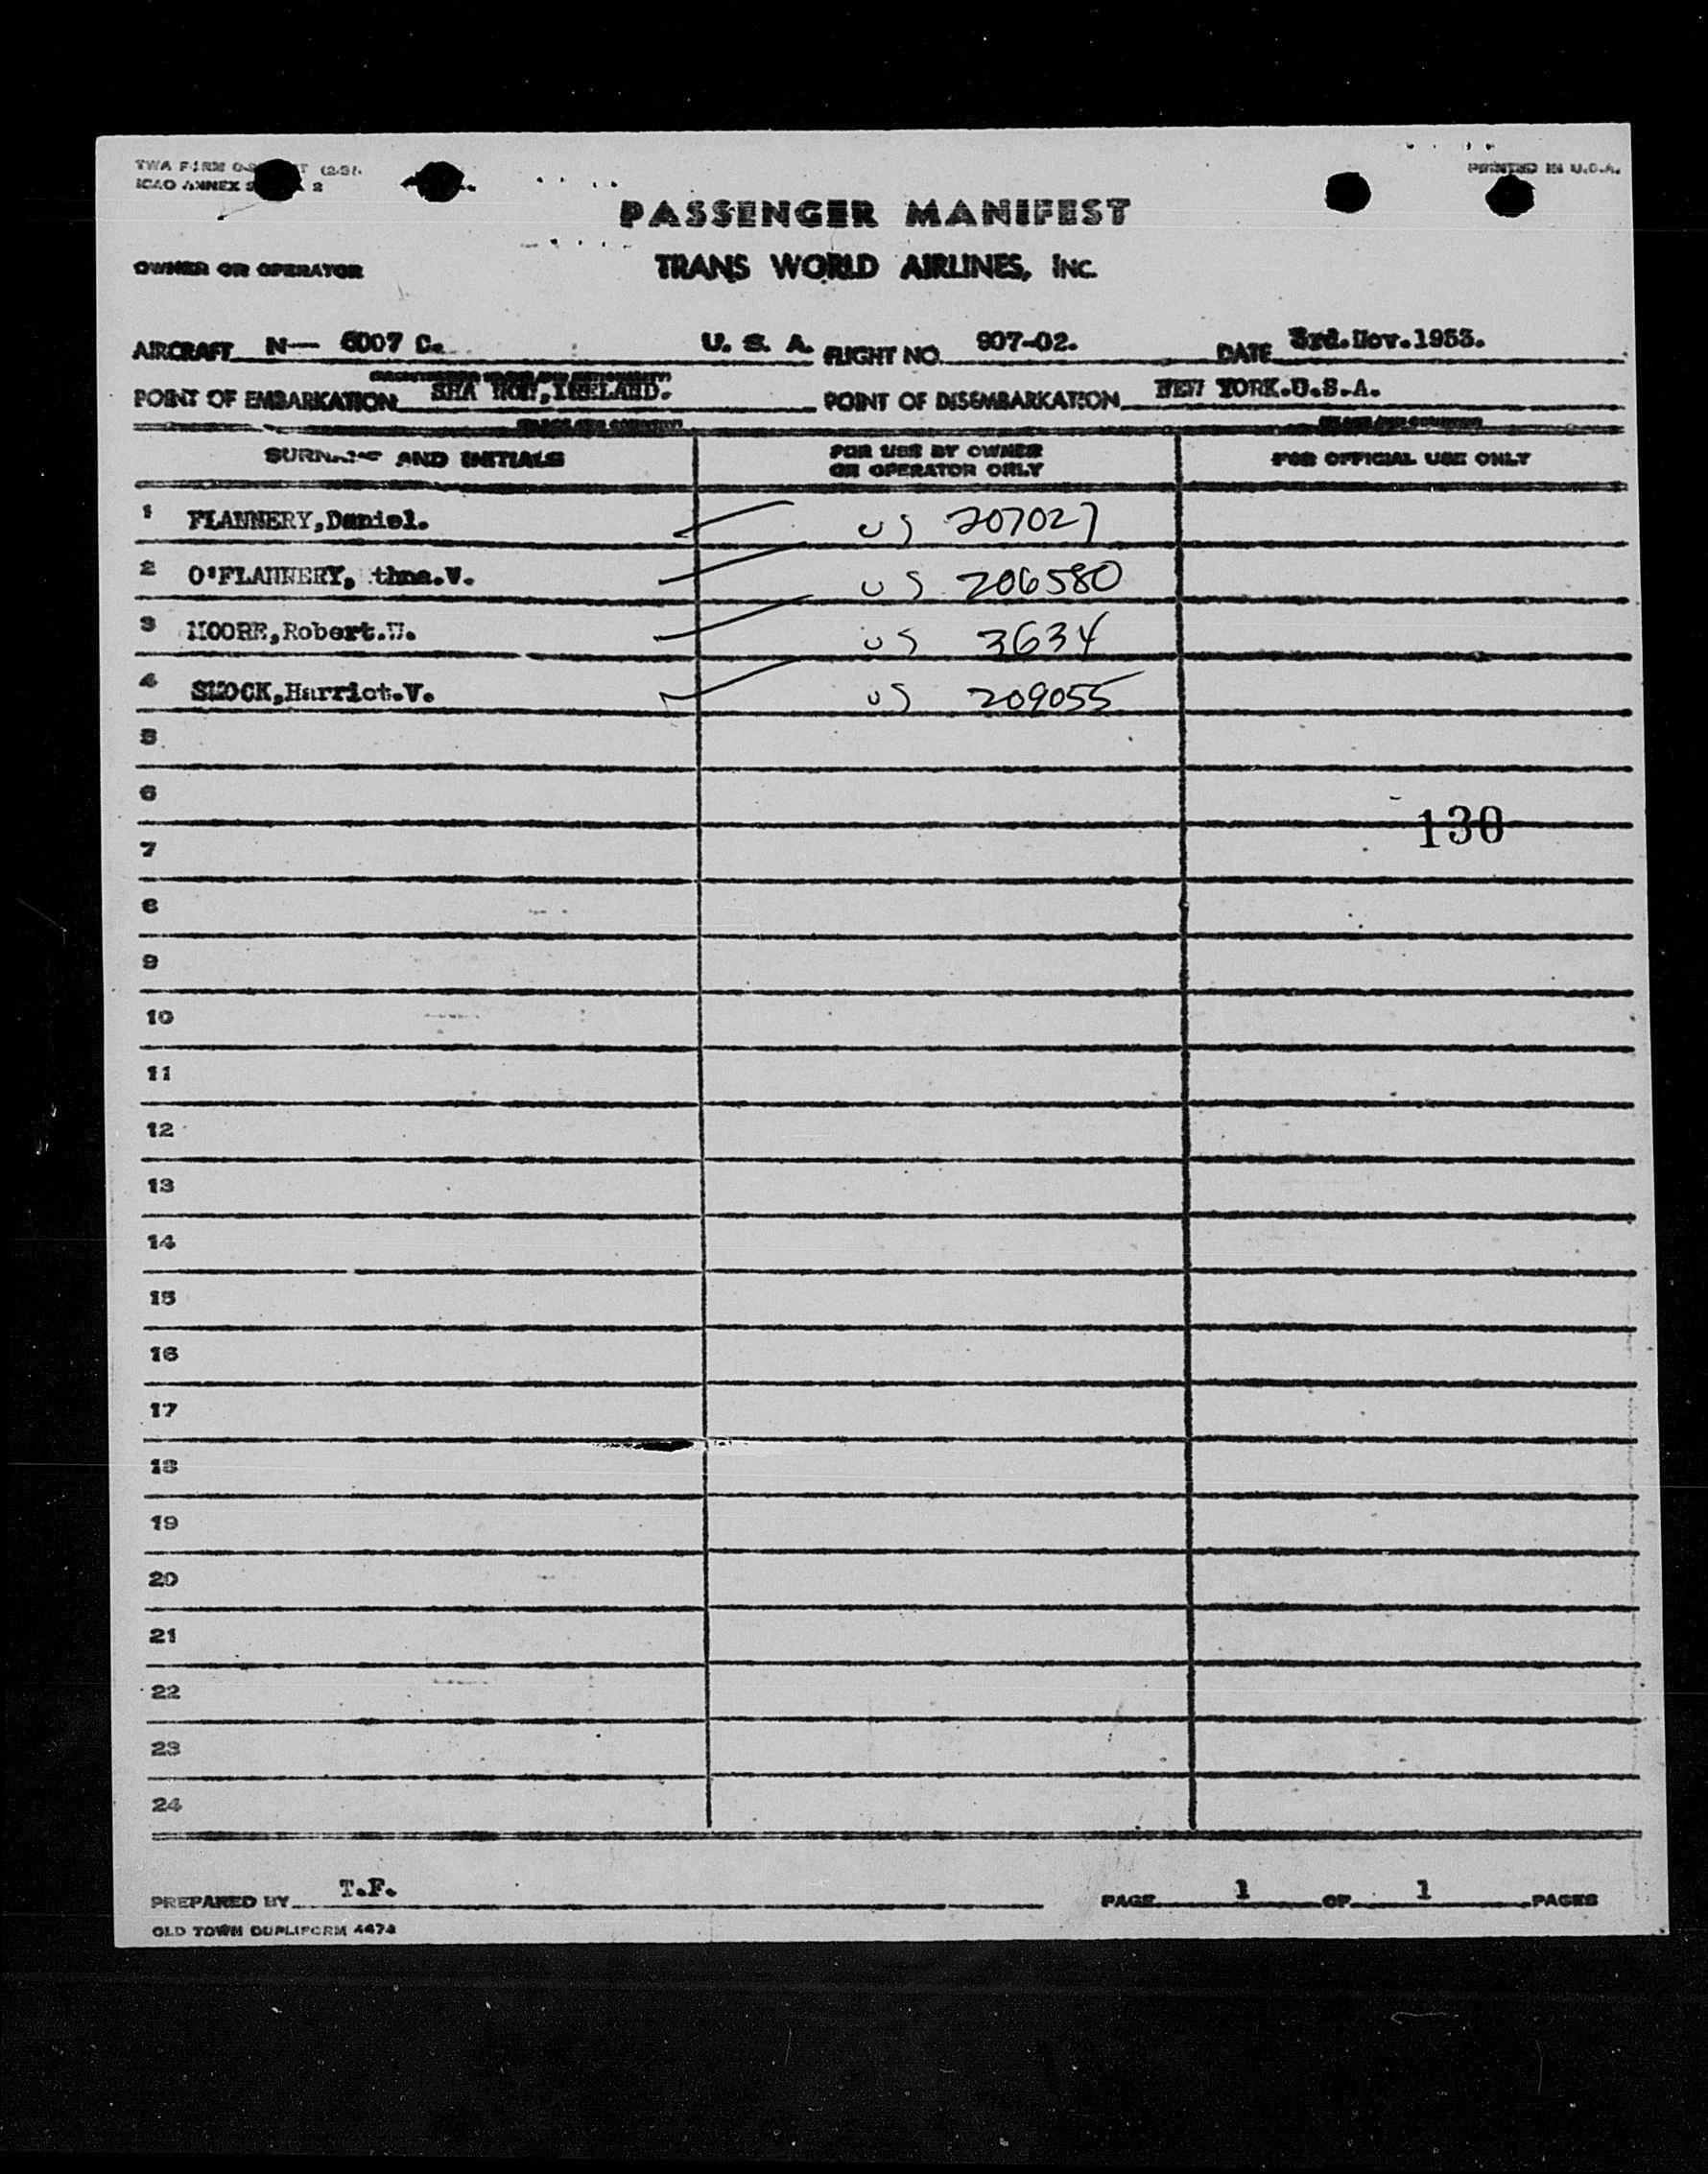 TWA FORM
ICAO ANNEX 9 2
PRINTED IN U.S.A.
PASSENGER MANIFEST
OWNER OR OPERATOR TRANS WORLD AIRLINES, INC.
AIRCRAFT N— 6007 C. U. S. A. FLIGHT NO. 907-02. DATE 3rd.Nov.1953.
(REGISTRATION MARKS AND NATIONALITY)
POINT OF EMBARKATION SHA NON,IRELAND. POINT OF DISEMBARKATION NEW YORK.U.S.A.
(PLACE AND COUNTRY) (PLACE AND COUNTRY)
SURNAME AND INITIALS FOR USE BY OWNER OR OPERATOR ONLY FOR OFFICIAL USE ONLY
1 FLANNERY,Daniel. US 207027
2 O'FLANNERY, thna.V. US 206580
3 MOORE,Robert.W. US 3634
4 SMOCK,Harriet.V. US 209055
5
6
130
7
8
9
10
11
12
13
14
15
16
17
18
19
20
21
22
23
24
PREPARED BY T.F. PAGE 1 OF 1 PAGES
OLD TOWN DUPLIFORM 4474